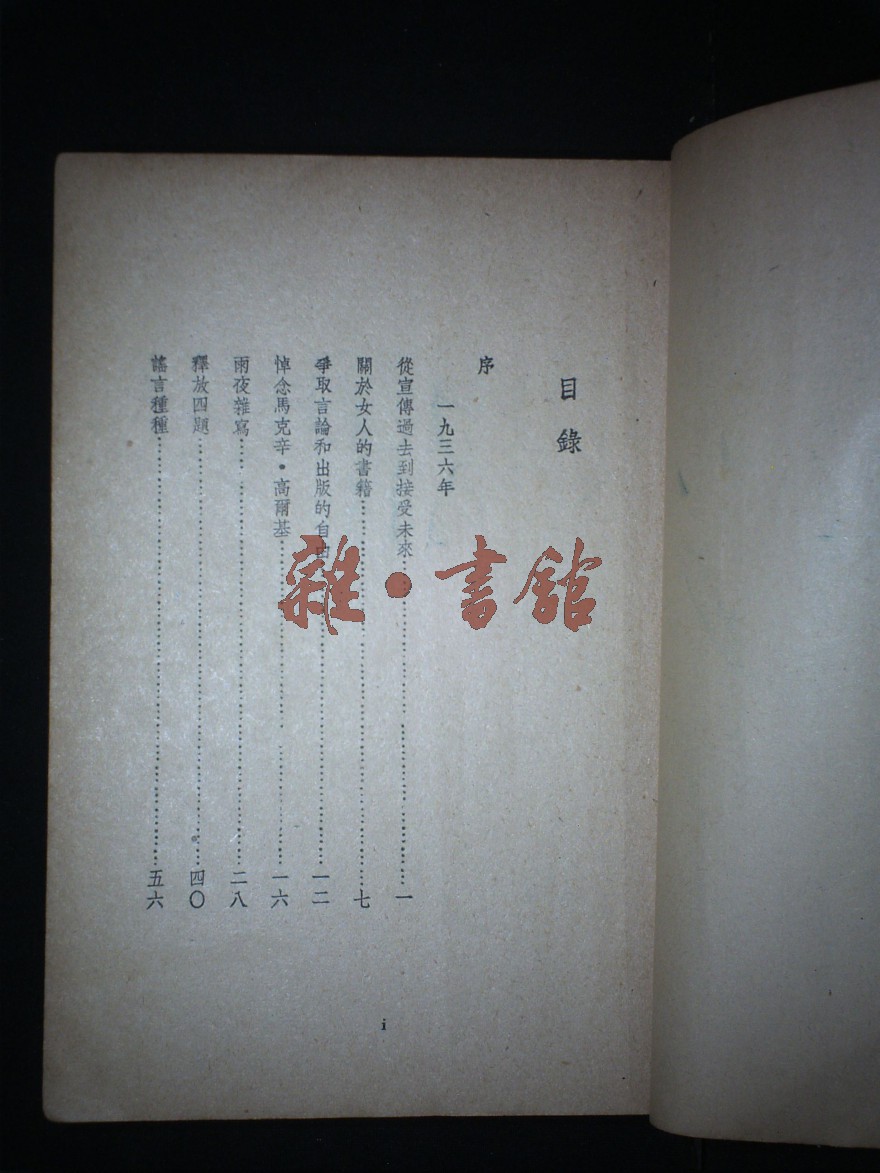 目錄
序
一九三六年
從宣傳過去到接受未來…………一
關於女人的書籍…………七
爭取言論和出版的自由…………一二
悼念馬克辛·高爾基…………一六
雨夜雜寫…………二八
釋放四題…………四〇
謠言種種…………五六
i
雜·書舘